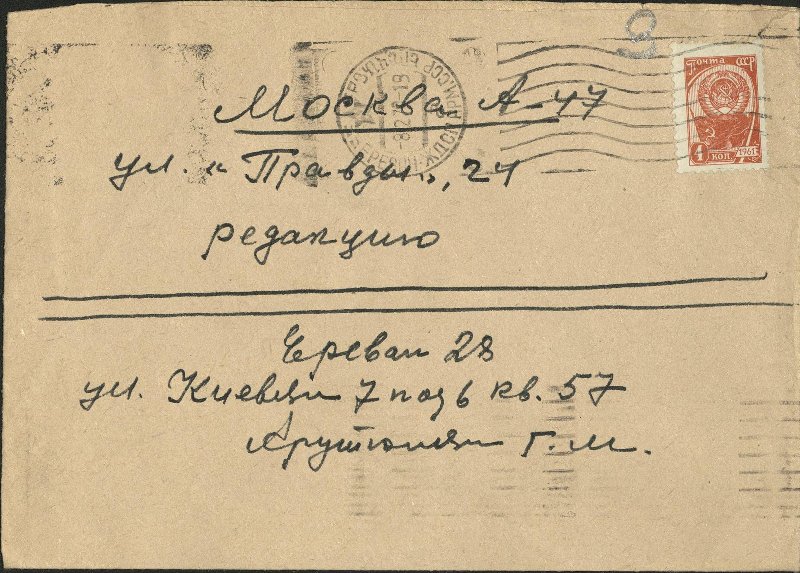 Почта СССР
4 коп. 1961
Москва А-47
ул. «Правды», 24
редакцию
Ереван 28
ул. Киевян 7 под 6 кв. 57
Арутюнян Г.М.